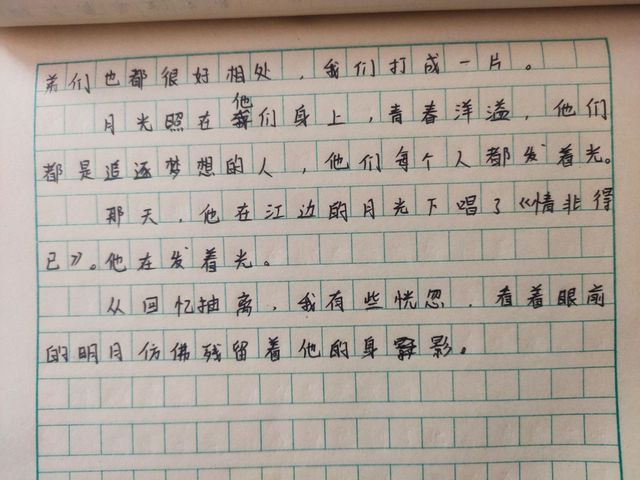 弟们也都很好相处，我们打成一片。
月光照在他们身上，青春洋溢，他们
都是追逐梦想的人，他们每个人都发着光。
那天，他在江边的月光下唱了《情非得
已》。他在发着光。
从回忆抽离，我有些恍忽，看着眼前
的明月仿佛残留着他的身影。